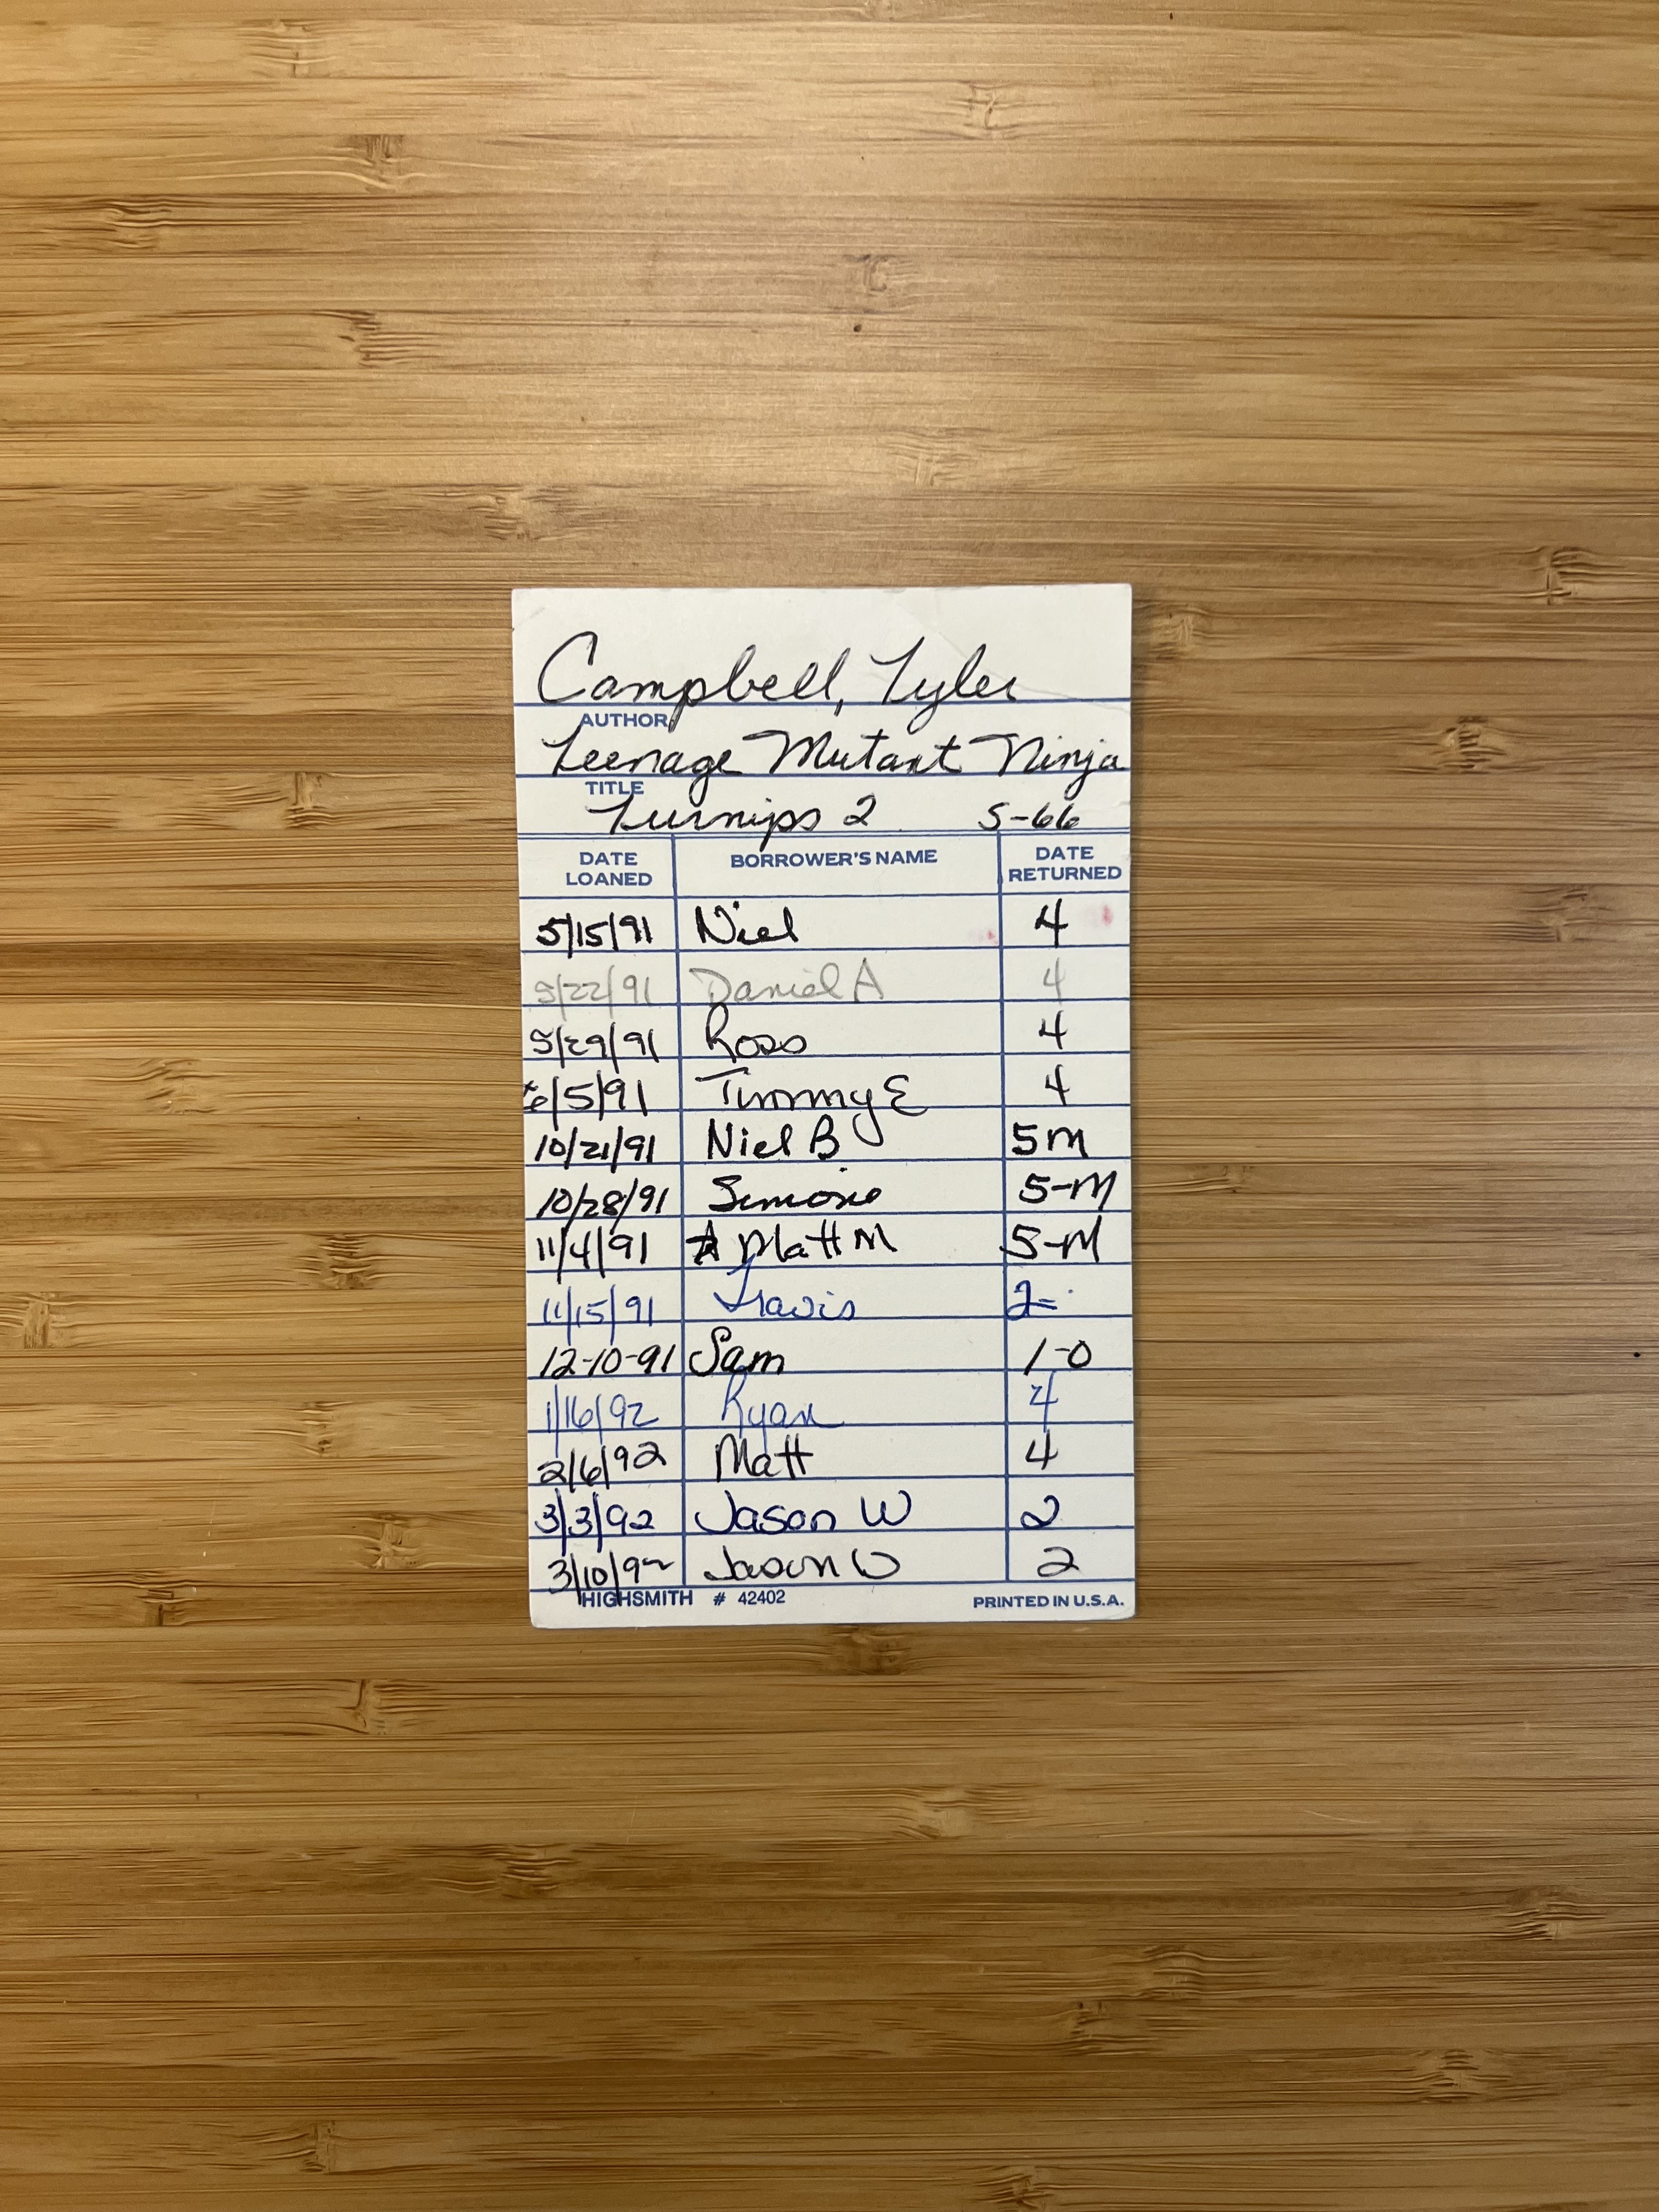 Campbell, Tyler
AUTHOR
Teenage Mutant Ninja
TITLE
Turnips 2 S-66
DATE LOANED BORROWER'S NAME DATE RETURNED
5/15/91 Niel 4
5/22/91 Daniel A 4
5/29/91 Ross 4
6/5/91 Timmy E 4
10/21/91 Niel B 5M
10/28/91 Simone 5-M
11/4/91 Matt M 5-M
11/15/91 Travis 2=
12-10-91 Sam 1-0
1/16/92 Ryan 4
2/6/92 Matt 4
3/3/92 Jason W 2
3/10/92 Jason W 2
HIGHSMITH # 42402 PRINTED IN U.S.A.